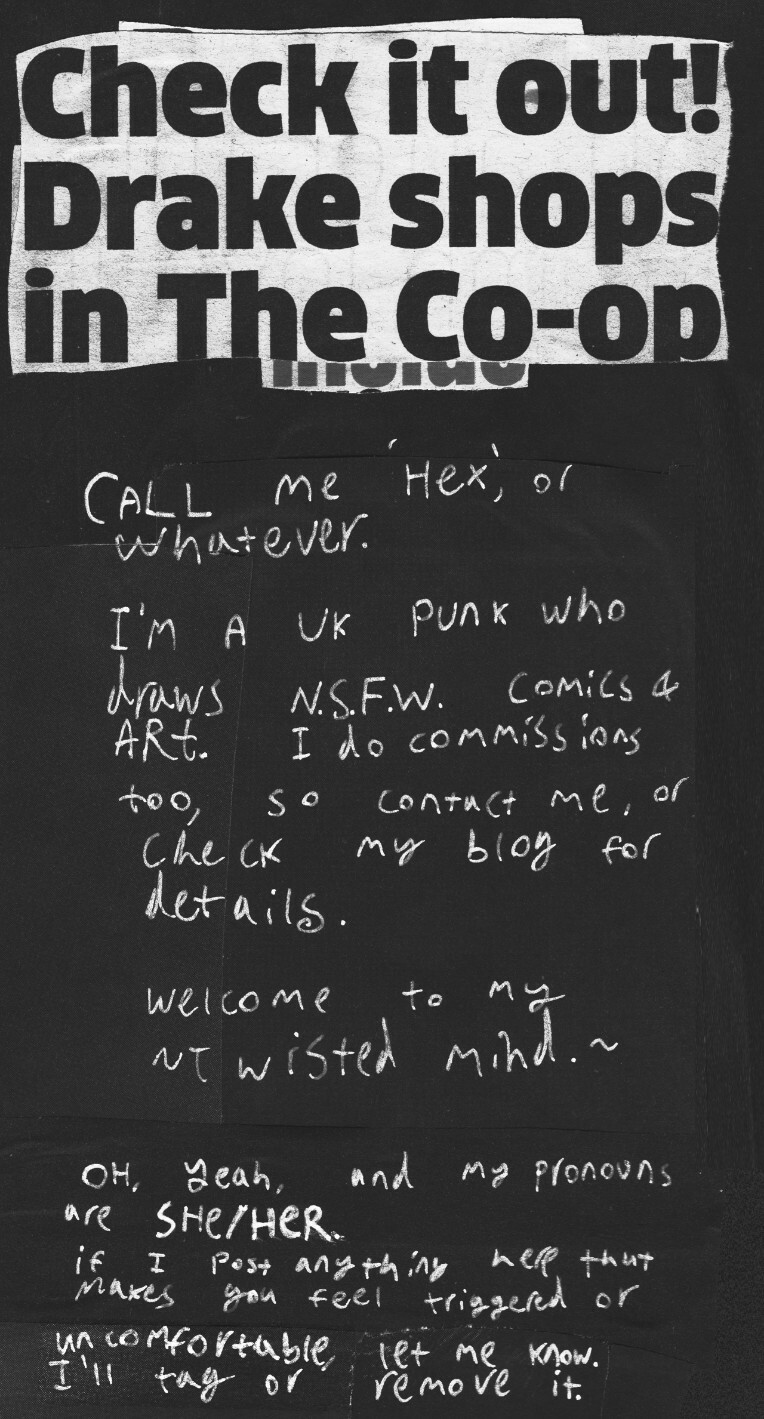 Check it out!
Drake shops
in The Co-op
CALL me 'Hex', or
whatever.
I'M A UK PUNK who
draws N.S.F.W. comics &
ARt. I do commissions
too, so contact me, or
check my blog for
details.
welcome to my
~Twisted mind.~
OH, yeah, and my pronouns
are SHE/HER.
if I post anything here that
makes you feel triggered or
uncomfortable, let me know.
I'll tag or remove it.